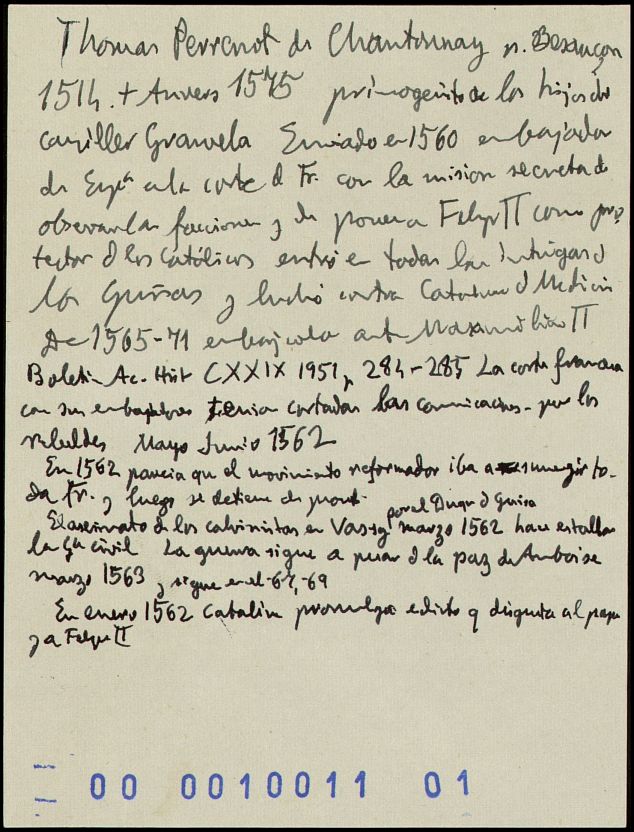 Thomas Perrenot de Chantonnay n. Besançon
1514 + Anvers 1575 primogenito de los hijos del
canciller Granvela Enviado en 1560 embajador
de Espª a la corte d Fr. con la mision secreta de
observar las facciones y de poner a Felipe II como pro-
tector d los Católicos entró en todas las intrigas d
los Guisas y luchó contra Catalina d Medicis
De 1565-71 embajada ante Maximiliano II
Boletin Ac. Hist CXXIX 1951, 284-285 La corte francesa
con sus embajadores tenian cortadas las comunicacions por los
rebeldes Mayo Junio 1562
En 1562 parecia que el movimiento reformador iba a sumergir to-
da Fr. y luego se detiene de pront
por el Duque d Guisa
El asesinato d los calvinistas en Vassy marzo 1562 hace estallar
la Gª civil La guerra sigue a pesar d la paz de Amboise
marzo 1563 y sigue en el -67, -69
En enero 1562 Catalina promulga edicto q disgusta al papa
y a Felipe II
00 0010011 01